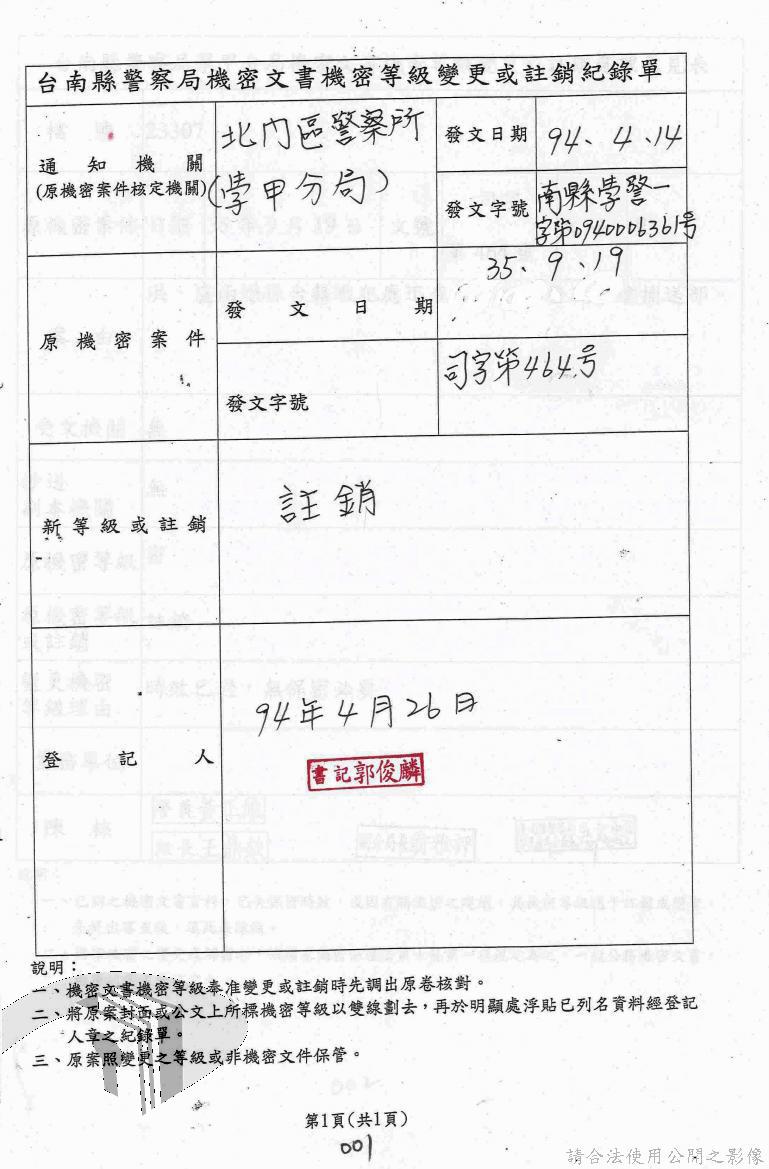 台南縣警察局機密文書機密等級變更或註銷紀錄單
通知機關
(原機密案件核定機關)
北門區警察所
(學甲分局)
發文日期
94、4、14
發文字號
南縣學警一
字第0940006361号
原機密案件
發文日期
35、9、19
發文字號
司字第464号
新等級或註銷
註銷
登記人
94年4月26日
書記郭俊麟
說明：
一、機密文書機密等級奉准變更或註銷時先調出原卷核對。
二、將原案封面或公文上所標機密等級以雙線劃去，再於明顯處浮貼已列名資料經登記
人章之紀錄單。
三、原案照變更之等級或非機密文件保管。
第1頁(共1頁)
001
請合法使用公開之影像